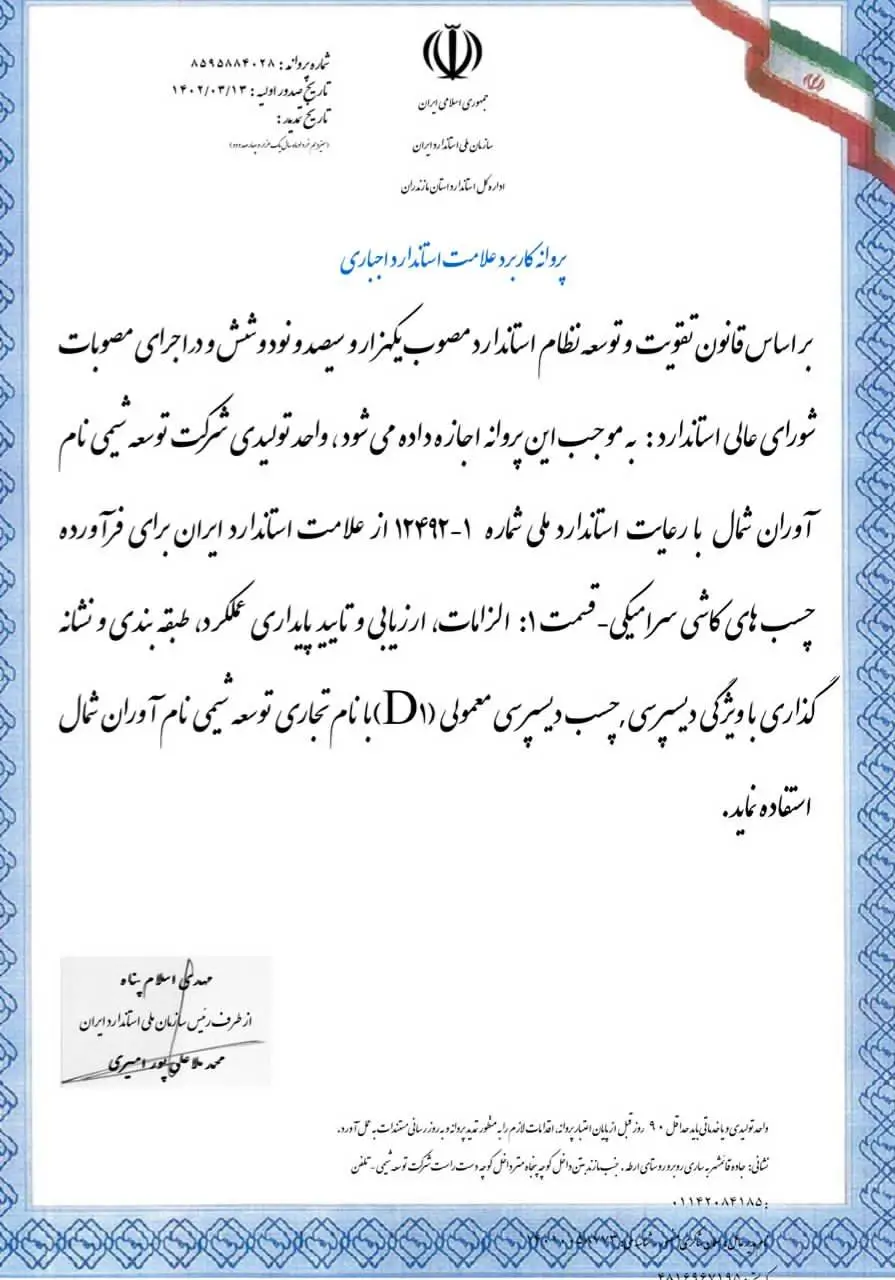 جمهوری اسلامی ایران
سازمان ملی استاندارد ایران
اداره کل استاندارد استان مازندران
شماره پروانه : ۸۵۹۵۸۸۴۰۲۸
تاریخ صدور اولیه : ۱۴۰۲/۰۳/۱۳
تاریخ تمدید :
پروانه کاربرد علامت استاندارد اجباری
بر اساس قانون تقویت و توسعه نظام استاندارد مصوب یکهزار و سیصد و نود و شش و در اجرای مصوبات
شورای عالی استاندارد : به موجب این پروانه اجازه داده می شود ، واحد تولیدی شرکت توسعه شیمی نام
آوران شمال با رعایت استاندارد ملی شماره ۱-۱۲۴۹۲ از علامت استاندارد ایران برای فرآورده
چسب های کاشی سرامیکی-قسمت ۱: الزامات، ارزیابی و تایید پایداری عملکرد، طبقه بندی و نشانه
گذاری با ویژگی دیسپرسی ,چسب دیسپرسی معمولی (D۱)با نام تجاری توسعه شیمی نام آوران شمال
استفاده نماید.
مهدی اسلام پناه
از طرف رئیس سازمان ملی استاندارد ایران
محمد ملاعلی پور امیری
واحد تولیدی و یا خدماتی باید حداقل ۹۰ روز قبل از پایان اعتبار پروانه، اقدامات لازم را به منظور تمدید پروانه و به روز رسانی مستندات به عمل آورد.
نشانی: جاده قائمشهر به ساری روبرو روستای ارطه . جنب مازند بتن داخل کوچه پنجاه متر داخل کوچه دست راست شرکت توسعه شیمی - تلفن
: ۰۱۱۴۲۰۸۴۱۸۵